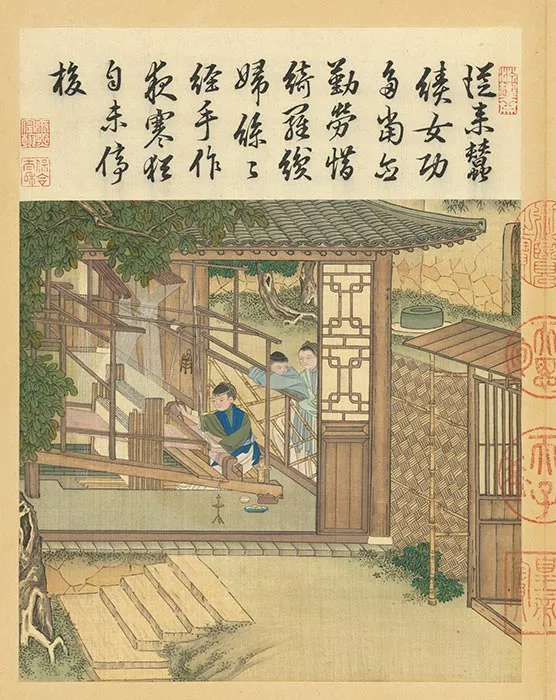 從来蠶
績女功
多當念
勤勞惜
綺羅織
婦絲〻
經手作
夜寒猶
自未停
梭